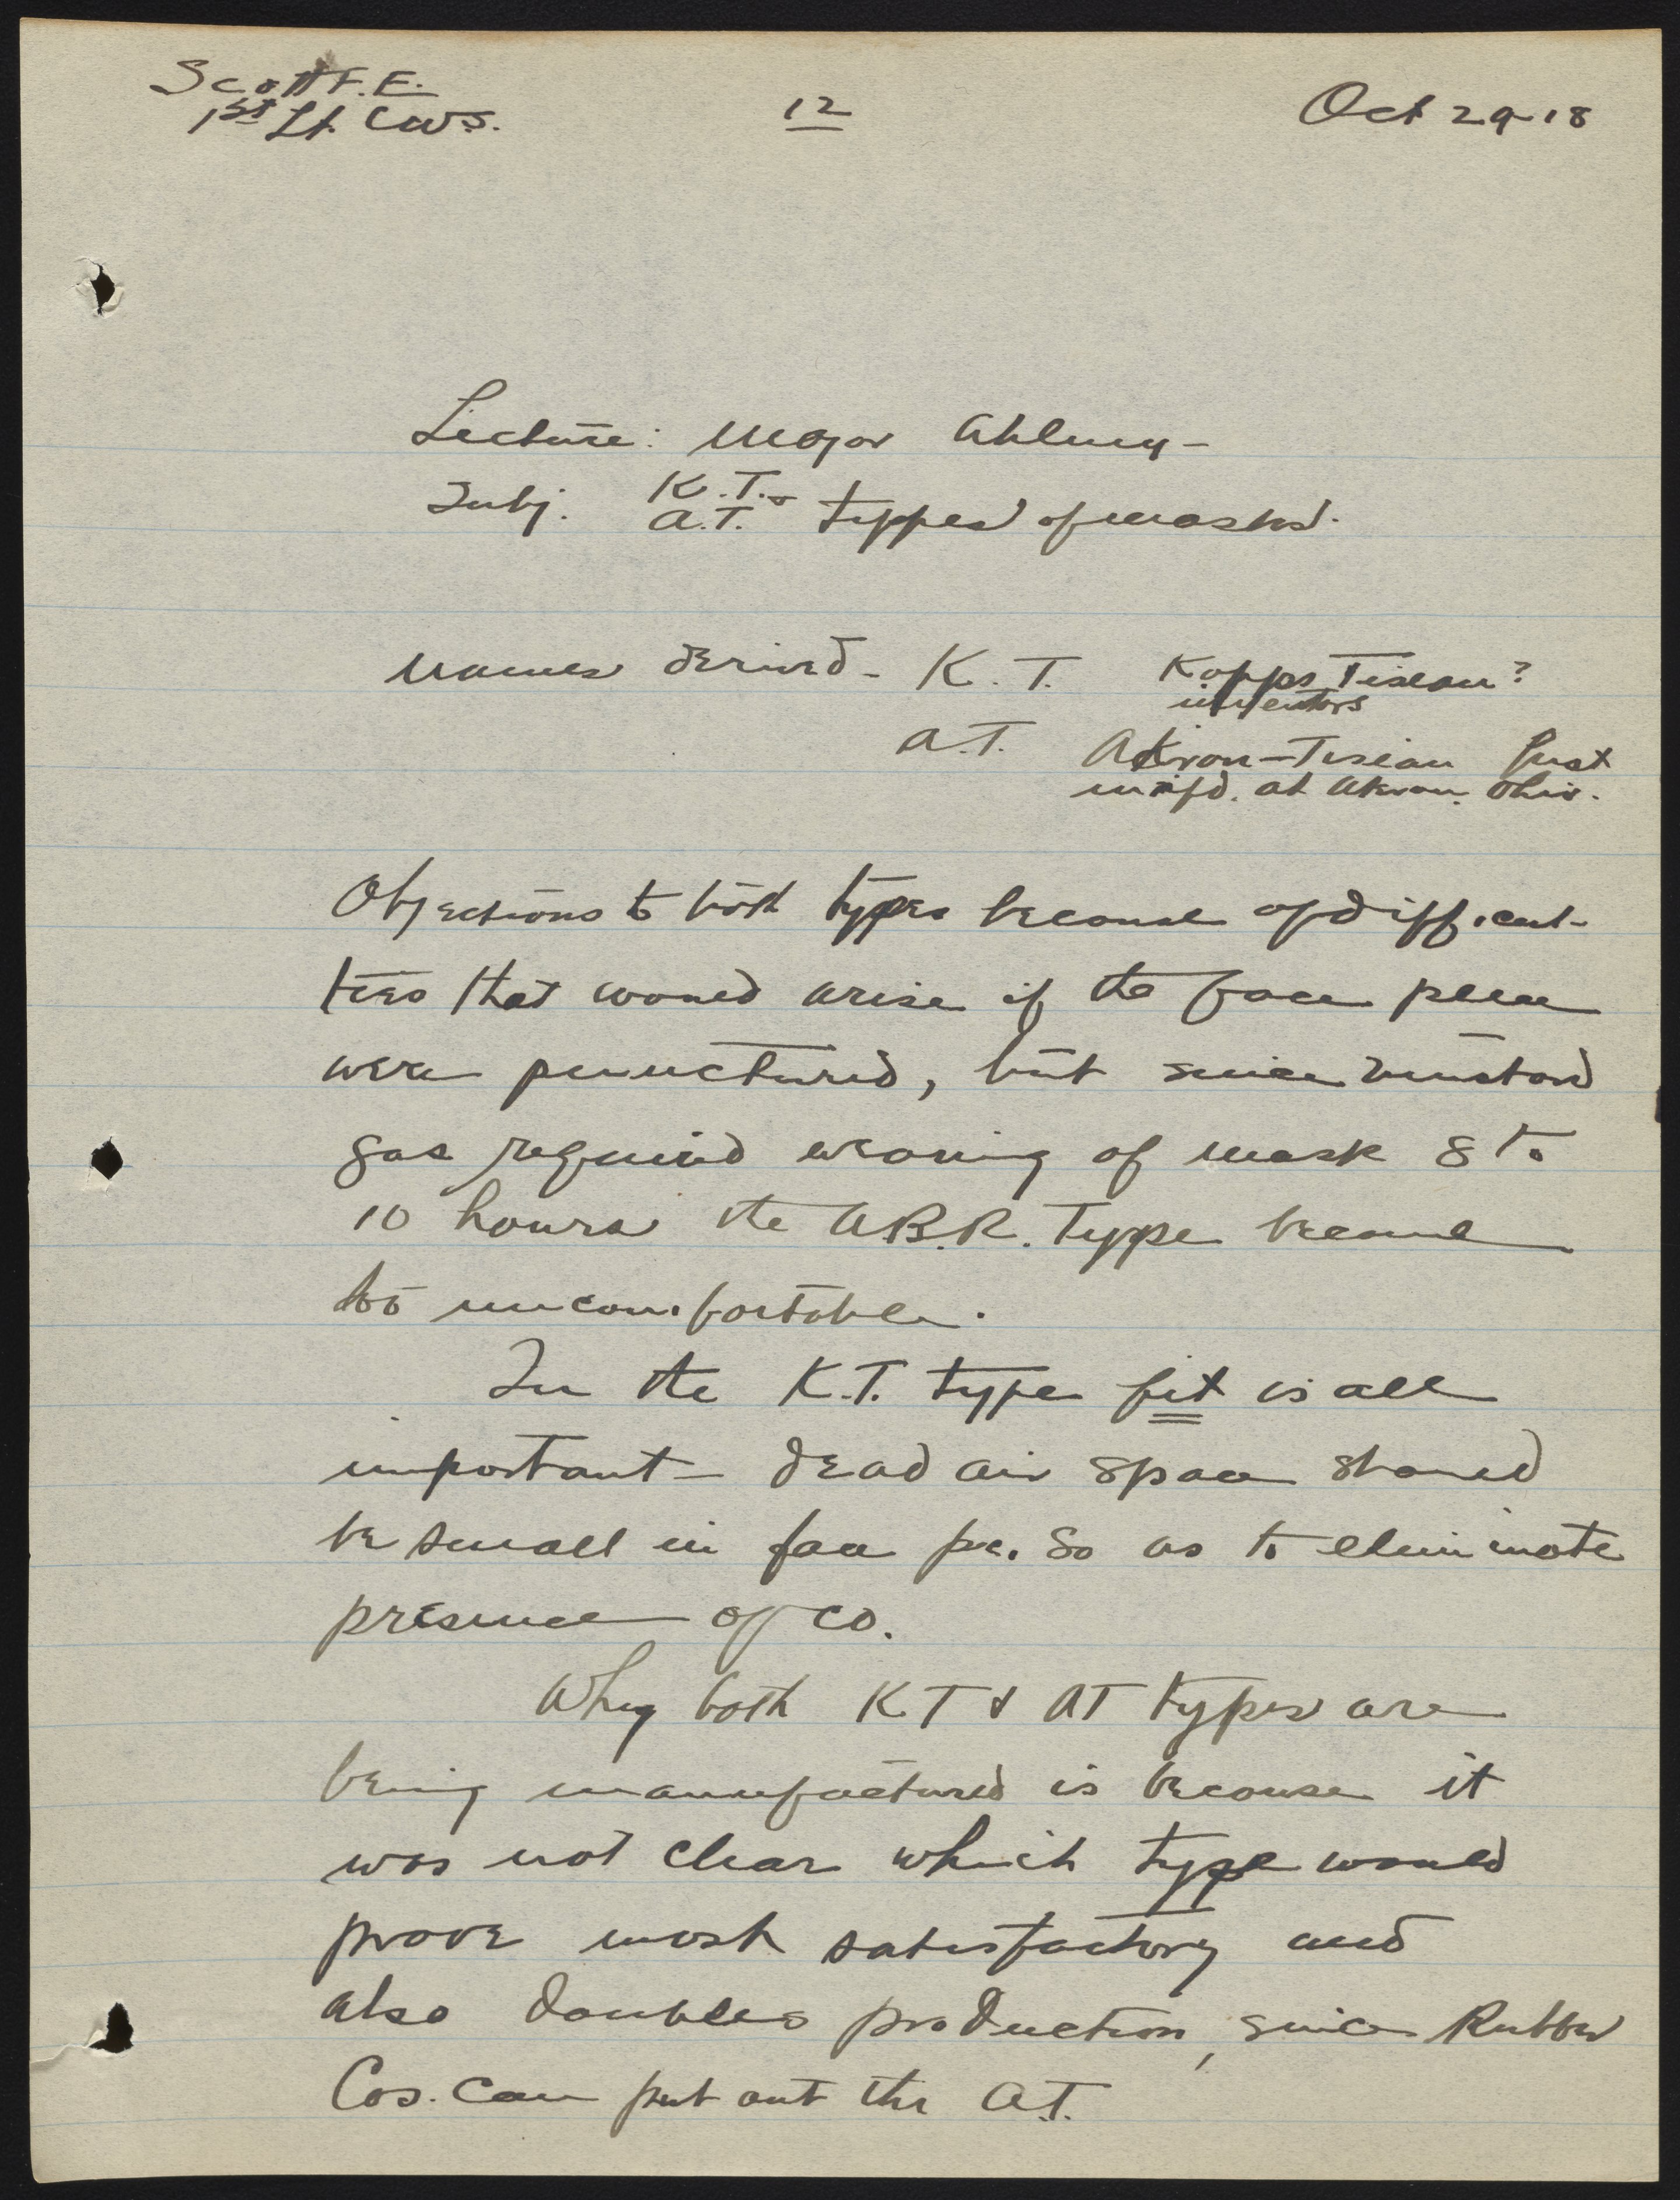 Scott F. E.
1st Lt. CWS.
12
Oct 29-18
Lecture: Major
Subj. K.T. &
A.T. types of masks.
Names derived - K.T. Kopps Tissau?
inventors
A.T. Akron-Tissau first
manfd. at Akron. Ohio.
Objections to both types because of difficul-
ties that would arise if the face piece
were punctured, but since mustard
gas required wearing of mask 8 to
10 hours the A.B.R. Type became
too uncomfortable.
In the K.T. type fit is all
important - dead air space should
be small in face pc. so as to eliminate
presence of CO.
Why both KT & AT types are
being manufactured is because it
was not clear which type would
prove most satisfactory and
also doubles production, since Rubber
Cos. can put out the A.T.